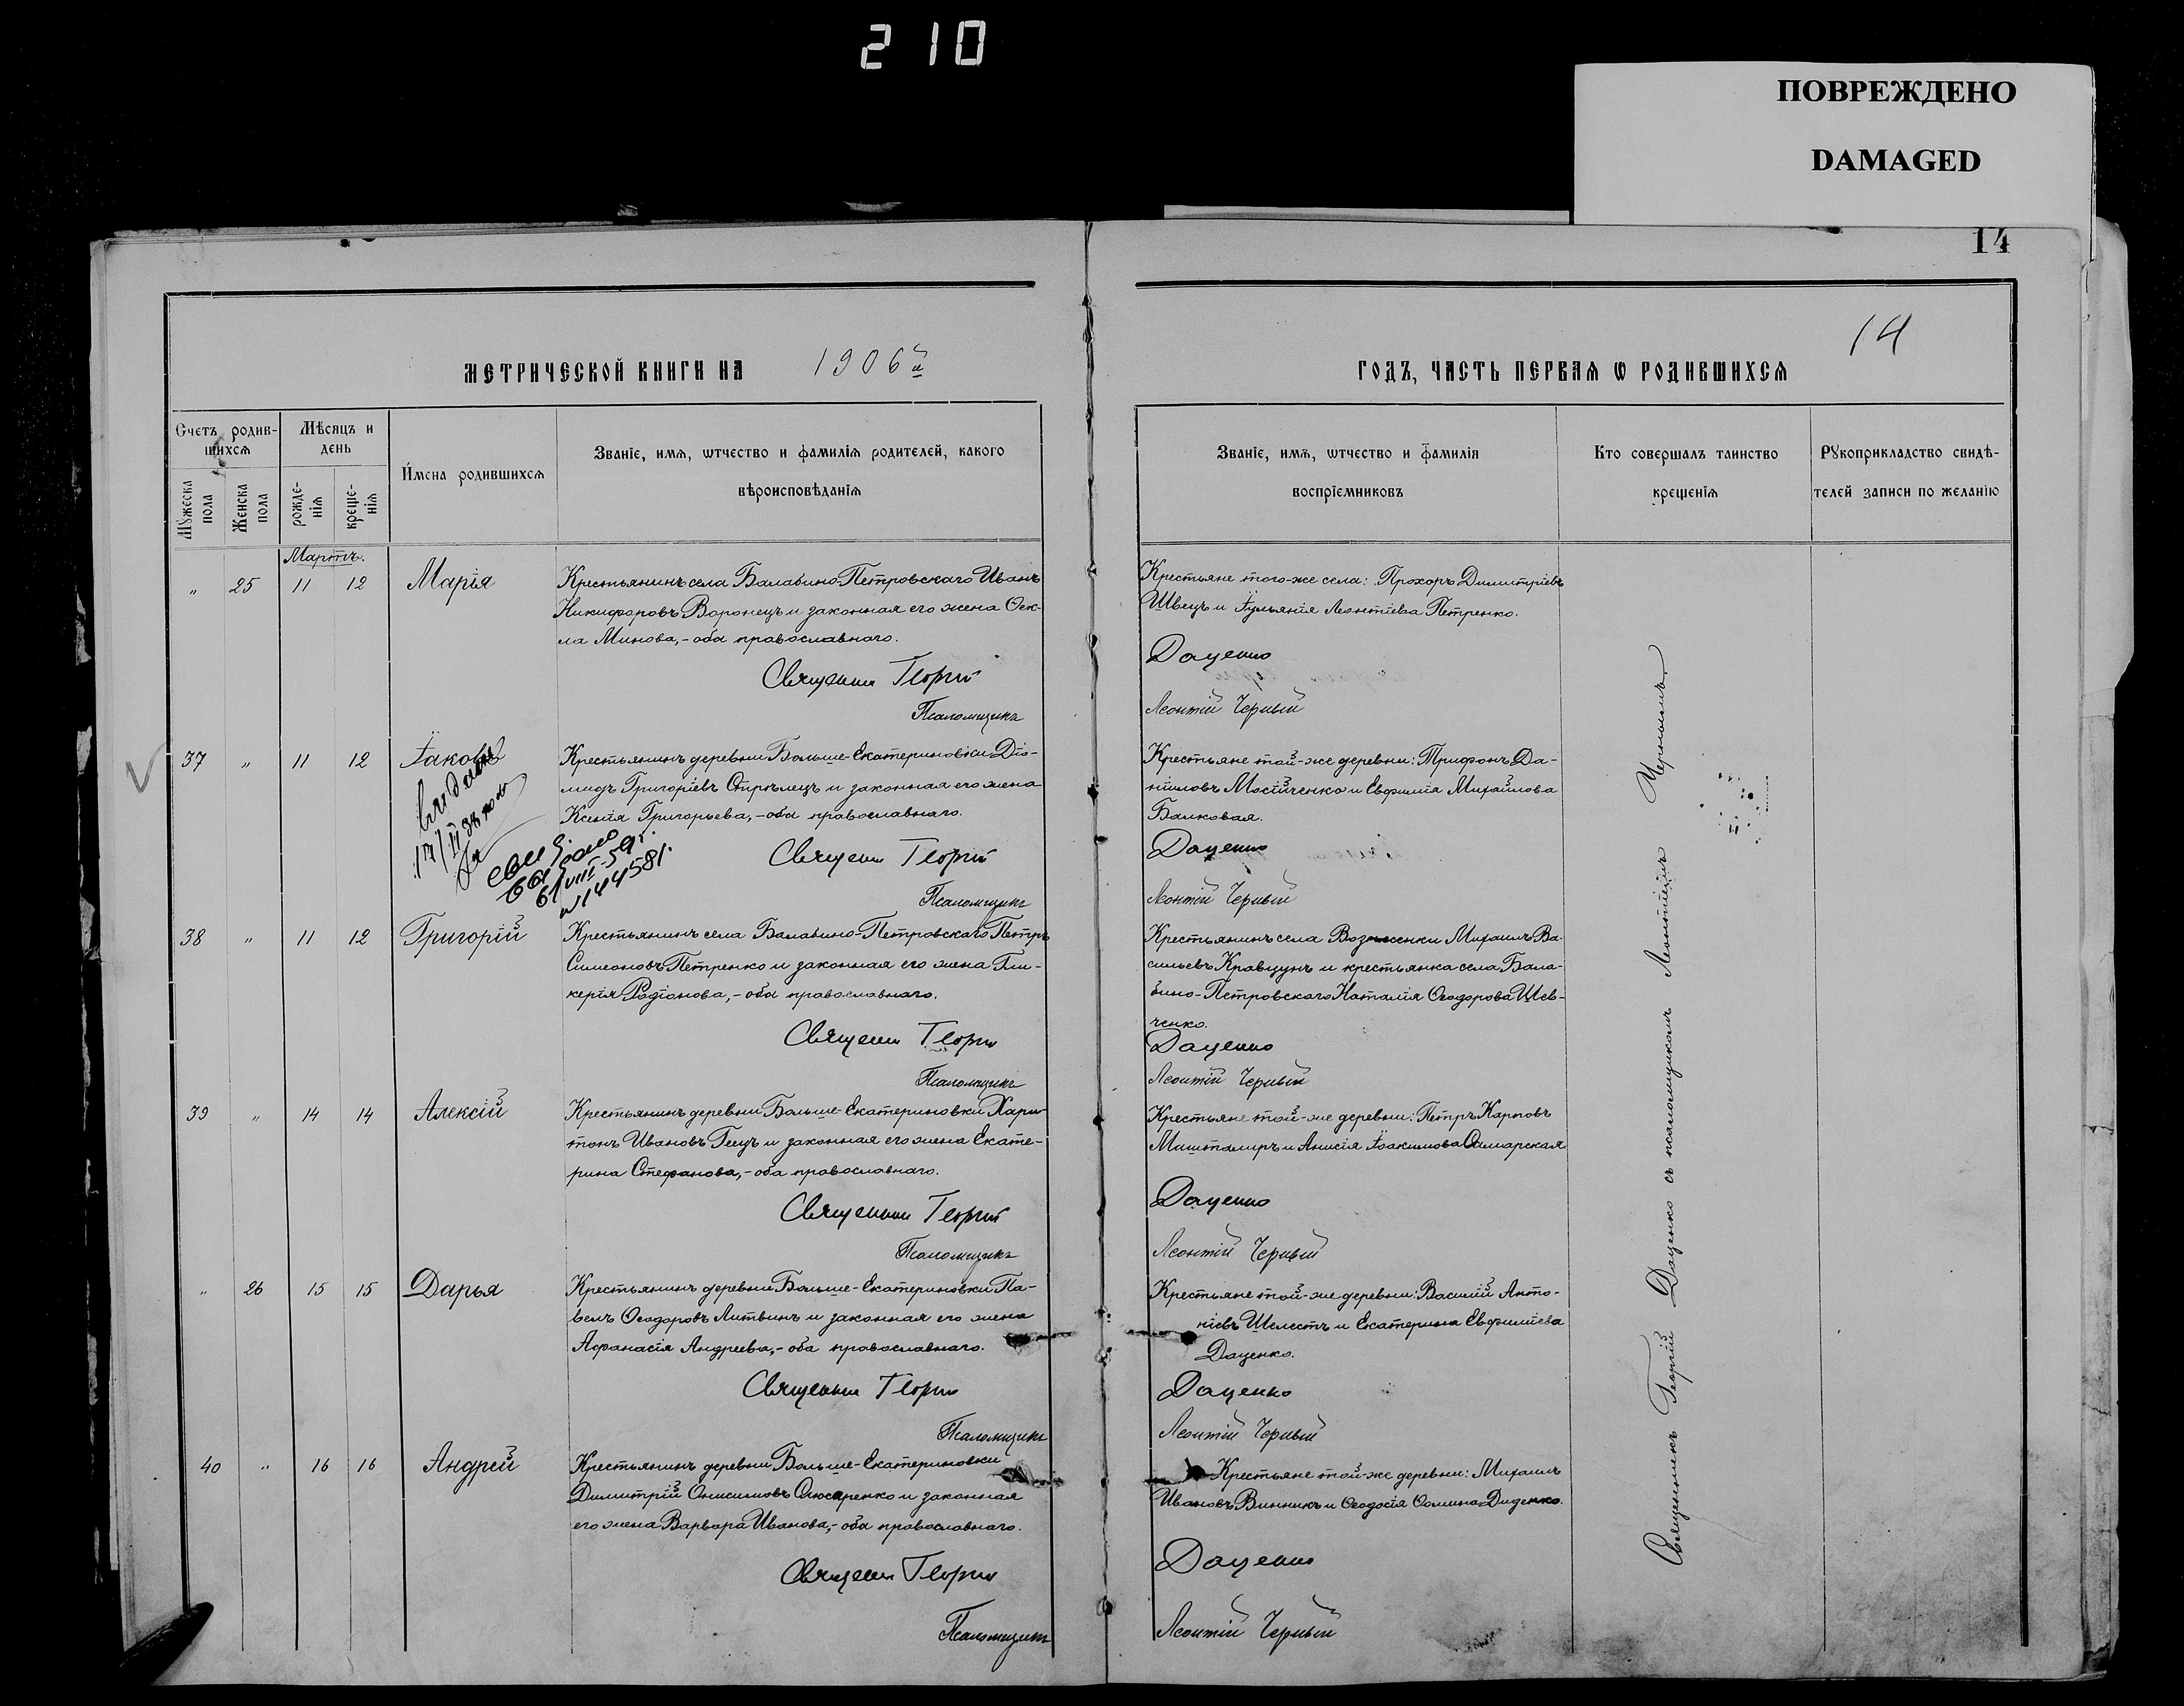 210
ПОВРЕЖДЕНО
DAMAGED
14
14
МЕТРИЧЕСКОЙ КНИГИ НА 1906й
ГОДЪ, ЧАСТЬ ПЕРВАЯ Ѡ РОДИВШИХСЯ
Счетъ родив-
шихся
Мѣсяцъ и
день
Мꙋжеска
пола
Женска
пола
рожде-
нія
креще-
нія
Имена родившихся
Званіе, имѧ, ѡтчество и фамиліѧ родителей, какого
вѣроисповѣданіѧ
Званіе, имѧ, ѡтчество и фамилія
воспріемниковъ
Кто совершалъ таинство
крещеніѧ
Рꙋкоприкладство свидѣ-
телей записи по желанію
Мартъ.
" 25 11 12 Марія
Крестьянинъ села Балабино-Петровскаго Иванъ
Никифоровъ Воронецъ и законная его жена Ѳек-
ла Минова,- оба православнаго.
Священник Георгій
Псаломщикъ
Крестьяне того-же села: Прохоръ Димитріевъ
Швецъ и Іульянія Леонтіева Петренко.
Даценко
Леонтій Черный
37 " 11 12 Іаковъ
17/II 38
61 VIII-59г.
№ 144581.
Крестьянинъ деревни Больше-Екатериновки Діо-
мидъ Григоріевъ Стрѣлецъ и законная его жена
Ксенія Григорьева,- оба православнаго.
Священ Георгій
Псаломщикъ
Крестьяне той-же деревни: Трифонъ Да-
ниловъ Мосійченко и Евфимія Михайлова
Балковая.
Даценко
Леонтій Черный
38 " 11 12 Григорій
Крестьянинъ села Балабино-Петровскаго Петръ
Симеоновъ Петренко и законная его жена Гли-
керія Родіонова,- оба православнаго.
Священ Георгій
Псаломщикъ
Крестьянинъ села Вознесенки Михаилъ Ва-
сильевъ Кравцунъ и крестьянка села Бала-
бино-Петровскаго Наталія Ѳеодорова Шев-
ченко.
Даценко
Леонтій Черный
39 " 14 14 Алексій
Крестьянинъ деревни Больше-Екатериновки Хари-
тонъ Ивановъ Гецъ и законная его жена Екате-
рина Стефанова,- оба православнаго.
Священник Георгій
Псаломщикъ
Крестьяне той-же деревни: Петръ Карповъ
Машталиръ и Анисія Іоакимова Самарская
Даценко
Леонтій Черный
" 26 15 15 Дарья
Крестьянинъ деревни Больше-Екатериновки Па-
велъ Ѳеодоровъ Литвинъ и законная его жена
Афанасія Андреева,- оба православнаго.
Священник Георгій
Псаломщикъ
Крестьяне той-же деревни: Василій Анто-
ніевъ Шелестъ и Екатерина Евфиміева
Даценко.
Даценко
Леонтій Черный
40 " 16 16 Андрей
Крестьянинъ деревни Больше-Екатериновки
Димитрій Онисимовъ Слюсаренко и законная
его жена Варвара Иванова,- оба православнаго.
Священ Георгій
Псаломщикъ
Крестьяне той-же деревни: Михаилъ
Ивановъ Винникъ и Ѳеодосія Ѳомина Диденко.
Даценко
Леонтій Черный
Священникъ Георгій Даценко съ псаломщикомъ Леонтіемъ Чернымъ